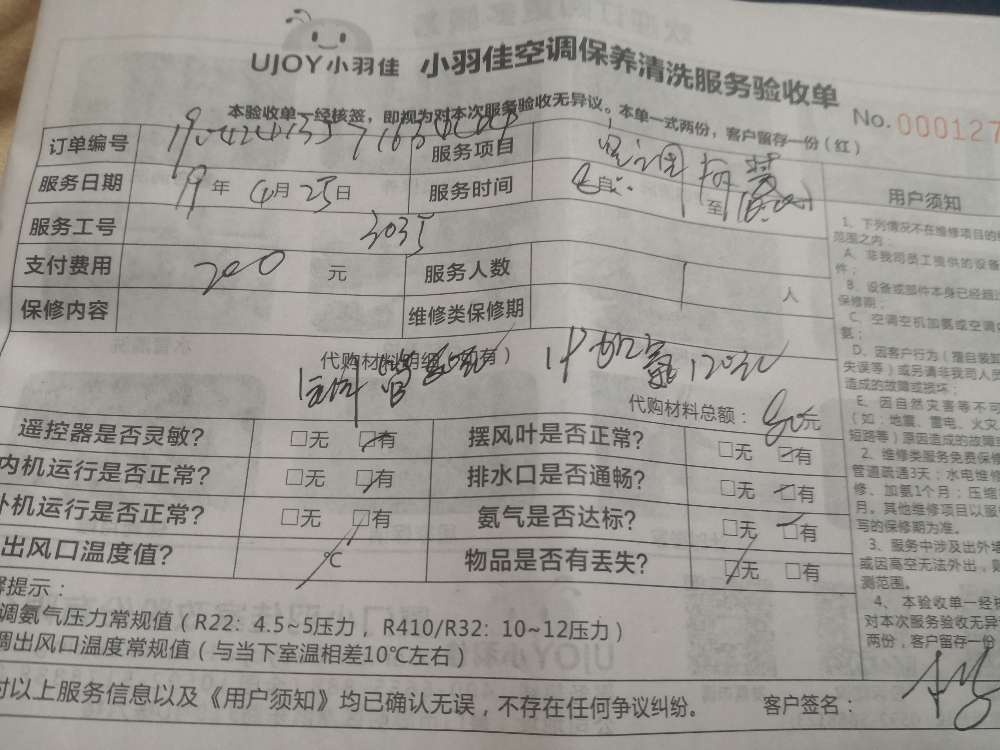 UJOY小羽佳 小羽佳空调保养清洗服务验收单
本验收单一经核签，即视为对本次服务验收无异议。本单一式两份，客户留存一份（红）
No. 000127
订单编号 服务项目
服务日期 19年 4月 25日 服务时间 自 至
服务工号 3035
支付费用 200 元 服务人数 1 人
保修内容 维修类保修期
代购材料明细（如有）
加氨 120元
代购材料总额： 元
遥控器是否灵敏？ □无 □有 摆风叶是否正常？ □无 □有
内机运行是否正常？ □无 □有 排水口是否通畅？ □无 □有
外机运行是否正常？ □无 □有 氨气是否达标？ □无 □有
出风口温度值？ ℃ 物品是否有丢失？ □无 □有
提示：
调氨气压力常规值（R22：4.5~5压力， R410/R32：10~12压力）
调出风口温度常规值（与当下室温相差10℃左右）
对以上服务信息以及《用户须知》均已确认无误，不存在任何争议纠纷。 客户签名：
用户须知
1、下列情况不在维修项目的
范围之内：
A、非我司员工提供的设备
件；
B、设备或部件本身已经超
保修期；
C、空调空机加氨或空调
氨；
D、因客户行为（擅自装
失误等）或另请非我司人员
造成的故障或损坏；
E、因自然灾害等不可
（如：地震、雷电、火灾
短路等）原因造成的故障
2、维修类服务免费保修
管道疏通3天；水电维修
修、加氨1个月；压缩
月。其他维修项目以服
写的保修期为准。
3、服务中涉及出外墙
或因高空无法外出，则
测范围。
4、本验收单一经核
对本次服务验收无异
两份，客户留存一份